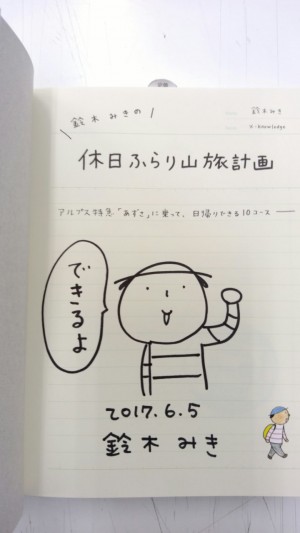 鈴木みきの
鈴木みき
K・knowledge
休日ふらり山旅計画
アルプス特急「あずさ」に乗って、日帰りできる10コース
できるよ
2017.6.5
鈴木みき